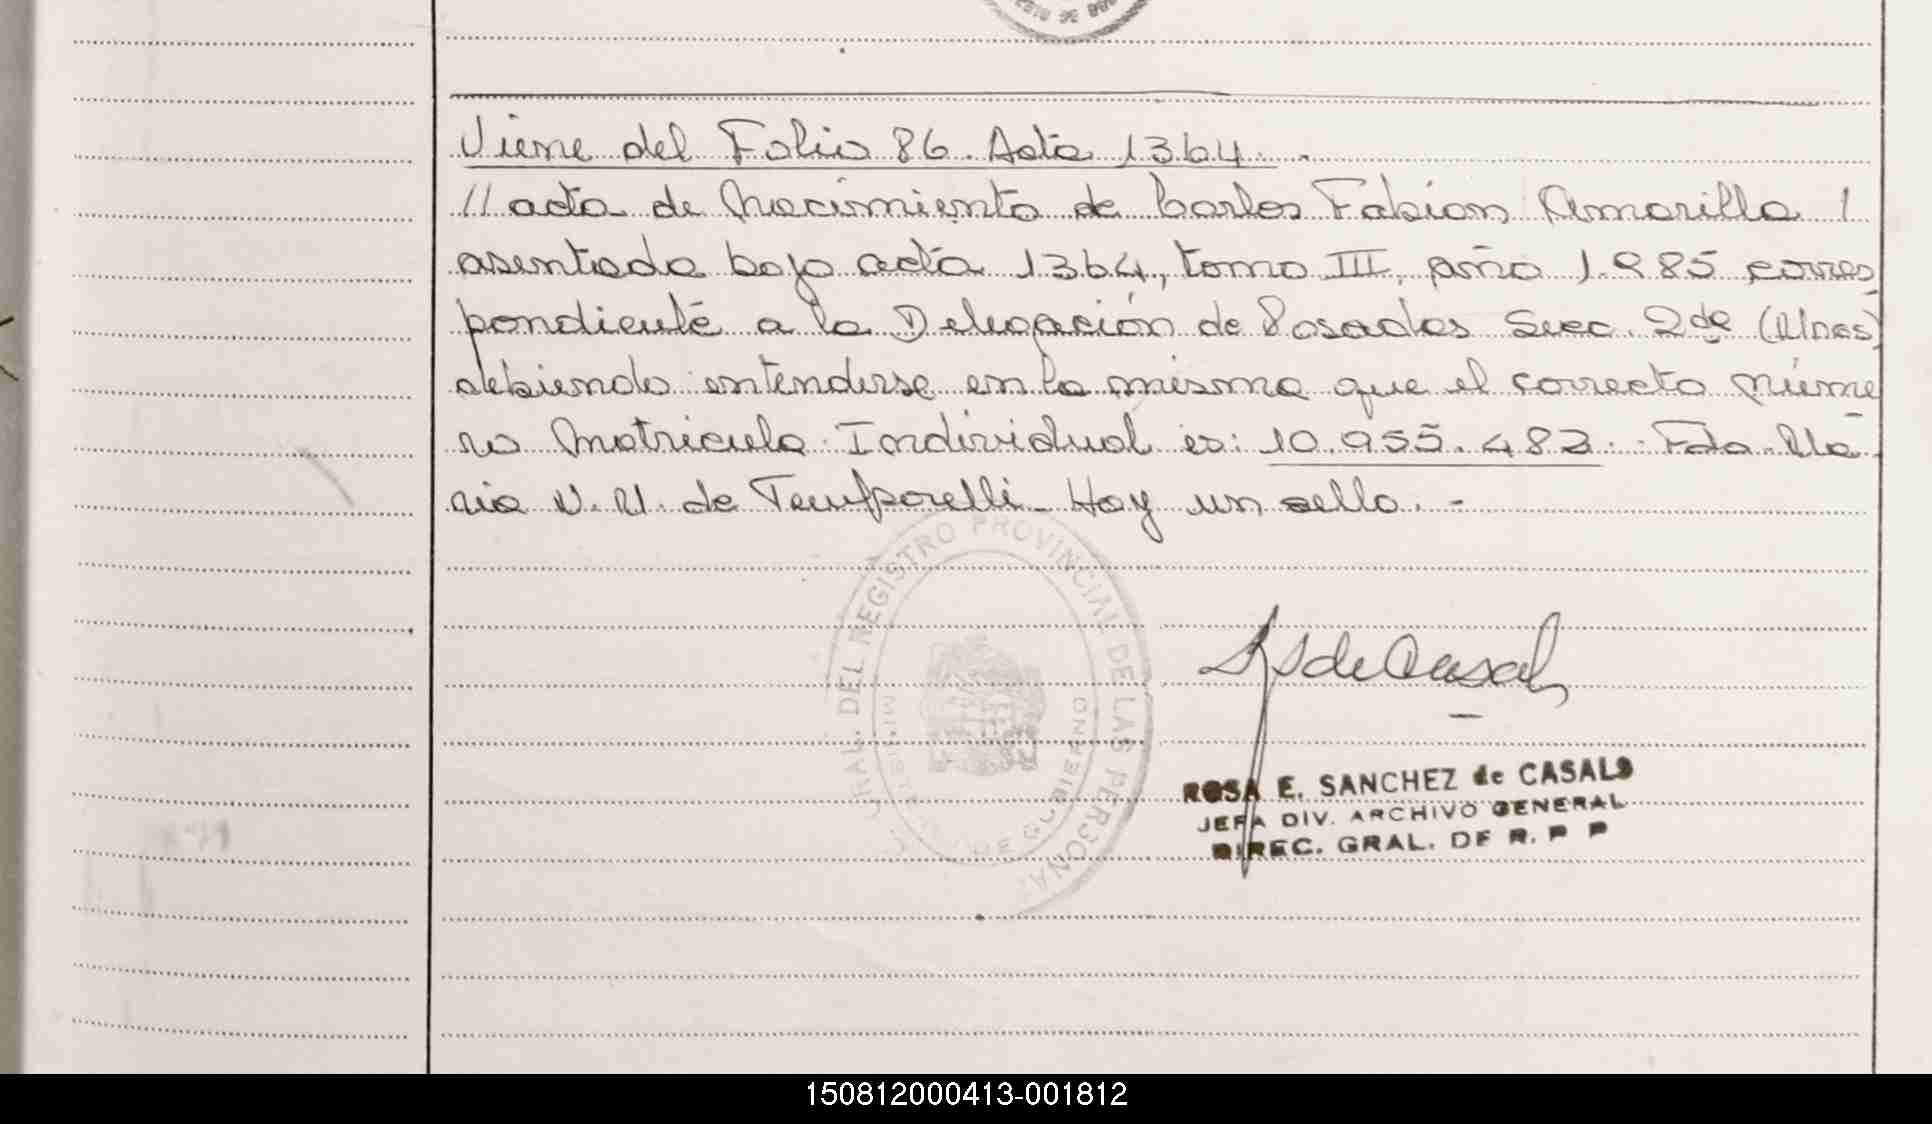 Viene del Folio 86. Acta 1364. -
// acta de Nacimiento de Carlos Fabian Amarilla /
asentada bajo acta 1364, tomo III, año 1.985 corres
pondiente a la Delegación de Posadas Secc. 2da (Mnes)
debiendo entenderse en la misma que el correcto núme
ro Matricula Individual es: 10.955.483. Fdo. Ma
ria V. M. de Temporelli - Hay un sello. -
GRAL. DEL REGISTRO PROVINCIAL DE LAS PERSONAS
DE GOBIERNO
ROSA E. SANCHEZ de CASALS
JEFA DIV. ARCHIVO GENERAL
DIREC. GRAL. DE R. P P
150812000413-001812